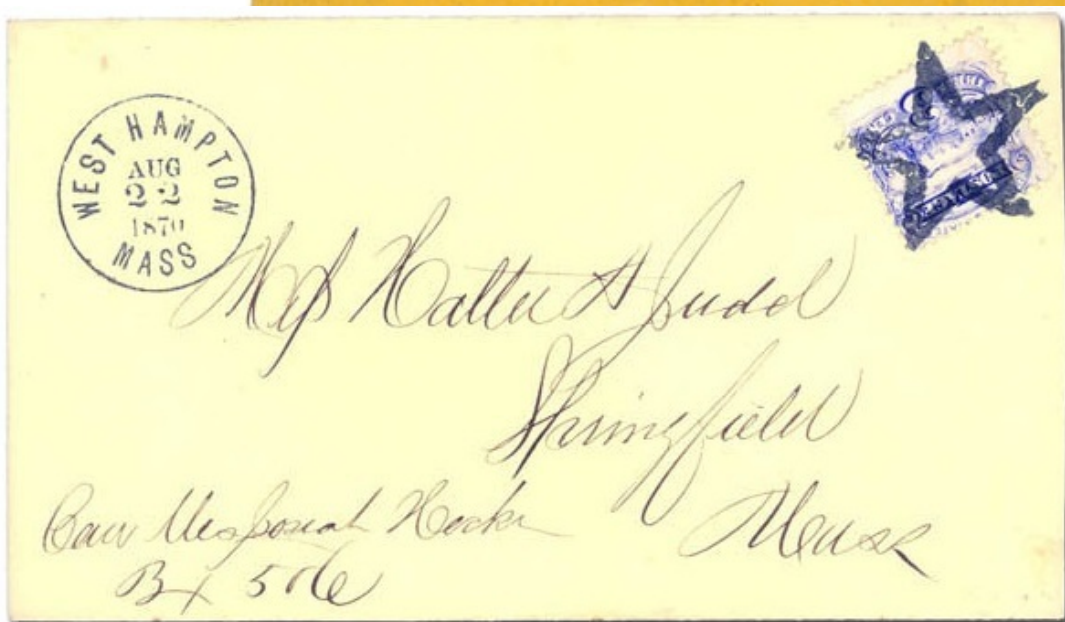 WEST HAMPTON
AUG
22
1870
MASS
3
Miss Hattie A Judd
Springfield
Mass
Care Mrs Josiah
Bx 506